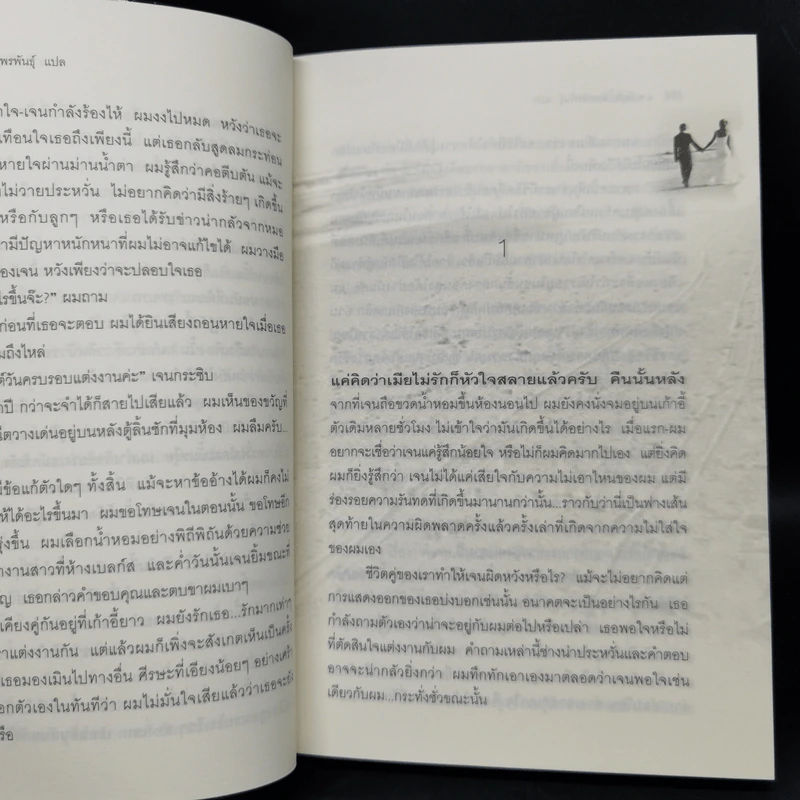 พรพันธุ์ แปล
ใจ-เจนกำลังร้องไห้ ผมงงไปหมด หวังว่าเธอจะ
เทือนใจเธอถึงเพียงนี้ แต่เธอกลับสูดลมกระท่อน
หายใจผ่านม่านน้ำตา ผมรู้สึกว่าคอตีบตัน แม้จะ
ไม่วายประหวั่น ไม่อยากคิดว่ามีสิ่งร้ายๆ เกิดขึ้น
หรือกับลูกๆ หรือเธอได้รับข่าวน่ากลัวจากหมอ
ามีปัญหาหนักหนาที่ผมไม่อาจแก้ไขได้ ผมวางมือ
องเจน หวังเพียงว่าจะปลอบใจเธอ
ไรขึ้นจ๊ะ?” ผมถาม
ก่อนที่เธอจะตอบ ผมได้ยินเสียงถอนหายใจเมื่อเธอ
มถึงไหล่
วันครบรอบแต่งงานค่ะ” เจนกระซิบ
ปี กว่าจะจำได้ก็สายไปเสียแล้ว ผมเห็นของขวัญที่
วางเด่นอยู่บนหลังตู้ลิ้นชักที่มุมห้อง ผมลืมครับ...
มีข้อแก้ตัวใดๆ ทั้งสิ้น แม้จะหาข้ออ้างได้ผมก็คงไม่
ห้ได้อะไรขึ้นมา ผมขอโทษเจนในตอนนั้น ขอโทษอีก
รุ่งขึ้น ผมเลือกน้ำหอมอย่างพิถีพิถันด้วยความช่วย
งานสาวที่ห้างเบลก์ส และค่ำวันนั้นเจนยิ้มขณะที่
ญ เธอกล่าวคำขอบคุณและตบขาผมเบาๆ
เคียงคู่กันอยู่ที่เก้าอี้ยาว ผมยังรักเธอ...รักมากเท่าๆ
าแต่งงานกัน แต่แล้วผมก็เพิ่งจะสังเกตเห็นเป็นครั้ง
เธอมองเมินไปทางอื่น ศีรษะที่เอียงน้อยๆ อย่างเศร้า
อกตัวเองในทันทีว่า ผมไม่มั่นใจเสียแล้วว่าเธอจะยัง
รือ
1
แค่คิดว่าเมียไม่รักก็หัวใจสลายแล้วครับ คืนนั้นหลัง
จากที่เจนถือขวดน้ำหอมขึ้นห้องนอนไป ผมยังคงนั่งจมอยู่บนเก้าอี้
ตัวเดิมหลายชั่วโมง ไม่เข้าใจว่ามันเกิดขึ้นได้อย่างไร เมื่อแรก-ผม
อยากจะเชื่อว่าเจนแค่รู้สึกน้อยใจ หรือไม่ก็ผมคิดมากไปเอง แต่ยิ่งคิด
ผมก็ยิ่งรู้สึกว่า เจนไม่ได้แค่เสียใจกับความไม่เอาไหนของผม แต่มี
ร่องรอยความรันทดที่เกิดขึ้นมานานกว่านั้น...ราวกับว่านี่เป็นฟางเส้น
สุดท้ายในความผิดพลาดครั้งแล้วครั้งเล่าที่เกิดจากความไม่ใส่ใจ
ของผมเอง
ชีวิตคู่ของเราทำให้เจนผิดหวังหรือไร? แม้จะไม่อยากคิดแต่
การแสดงออกของเธอบ่งบอกเช่นนั้น อนาคตจะเป็นอย่างไรกัน เธอ
กำลังถามตัวเองว่าน่าจะอยู่กับผมต่อไปหรือเปล่า เธอพอใจหรือไม่
ที่ตัดสินใจแต่งงานกับผม คำถามเหล่านี้ช่างน่าประหวั่นและคำตอบ
อาจจะน่ากลัวยิ่งกว่า ผมทึกทักเอาเองมาตลอดว่าเจนพอใจเช่น
เดียวกับผม...กระทั่งชั่วขณะนั้น